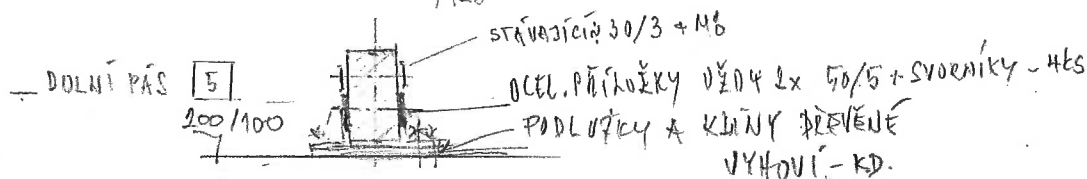 STÁVAJÍCÍ 30/3 + M8
DOLNÍ PÁS 5
200/100
OCEL. PŘÍLOŽKY VŽDY 2x 50/5 + SVORNÍKY - 4KS
PODLOŽKY A KLÍNY DŘEVĚNÉ
VYHOVÍ - KD.